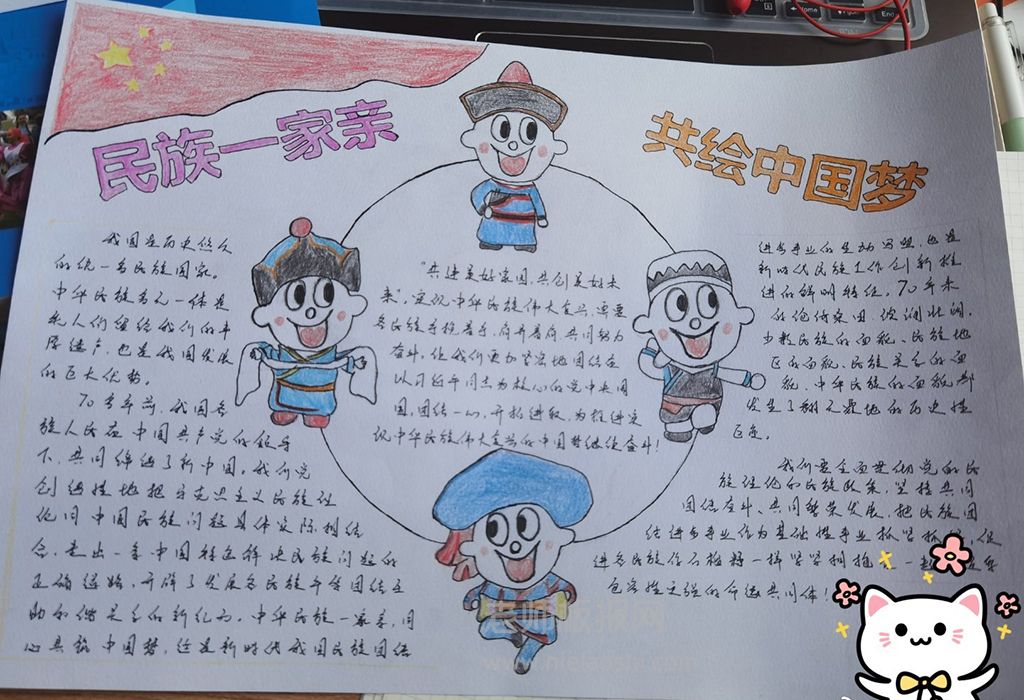 民族一家亲
共绘中国梦
我国是历史悠久
的统一多民族国家。
中华民族多元一体是
先人们留给我们的丰
厚遗产，也是我国发展
的巨大优势。
70多年前，我国各
族人民在中国共产党的领导
下，共同缔造了新中国。我们党
创造性地把马克思主义民族理
论同中国民族问题具体实际相结
合，走出一条中国特色解决民族问题的
正确道路，开辟了发展各民族平等团结互
助和谐关系的新纪元。中华民族一家亲，同
心共筑中国梦，这是新时代我国民族团结
"共建美好家园，共创美好未
来"，实现中华民族伟大复兴，需要
各民族手挽着手、肩并着肩，共同努力
奋斗，让我们更加紧密地团结在
以习近平同志为核心的党中央周
围，团结一心，开拓进取，为推进实
现中华民族伟大复兴的中国梦继续奋斗！
进步事业的生动写照，也是
新时代民族工作创新推
进的鲜明特征。70年来
的伟大变迁波澜壮阔，
少数民族的面貌、民族地
区的面貌、民族关系的面
貌、中华民族的面貌都
发生了翻天覆地的历史性
巨变。
我们要全面贯彻党的民
族理论和民族政策，坚持共同
团结奋斗、共同繁荣发展，把民族团
结进步事业作为基础性事业抓紧抓
进各民族像石榴籽一样紧紧拥抱
包容性更强的命运共同体！
老师板报网